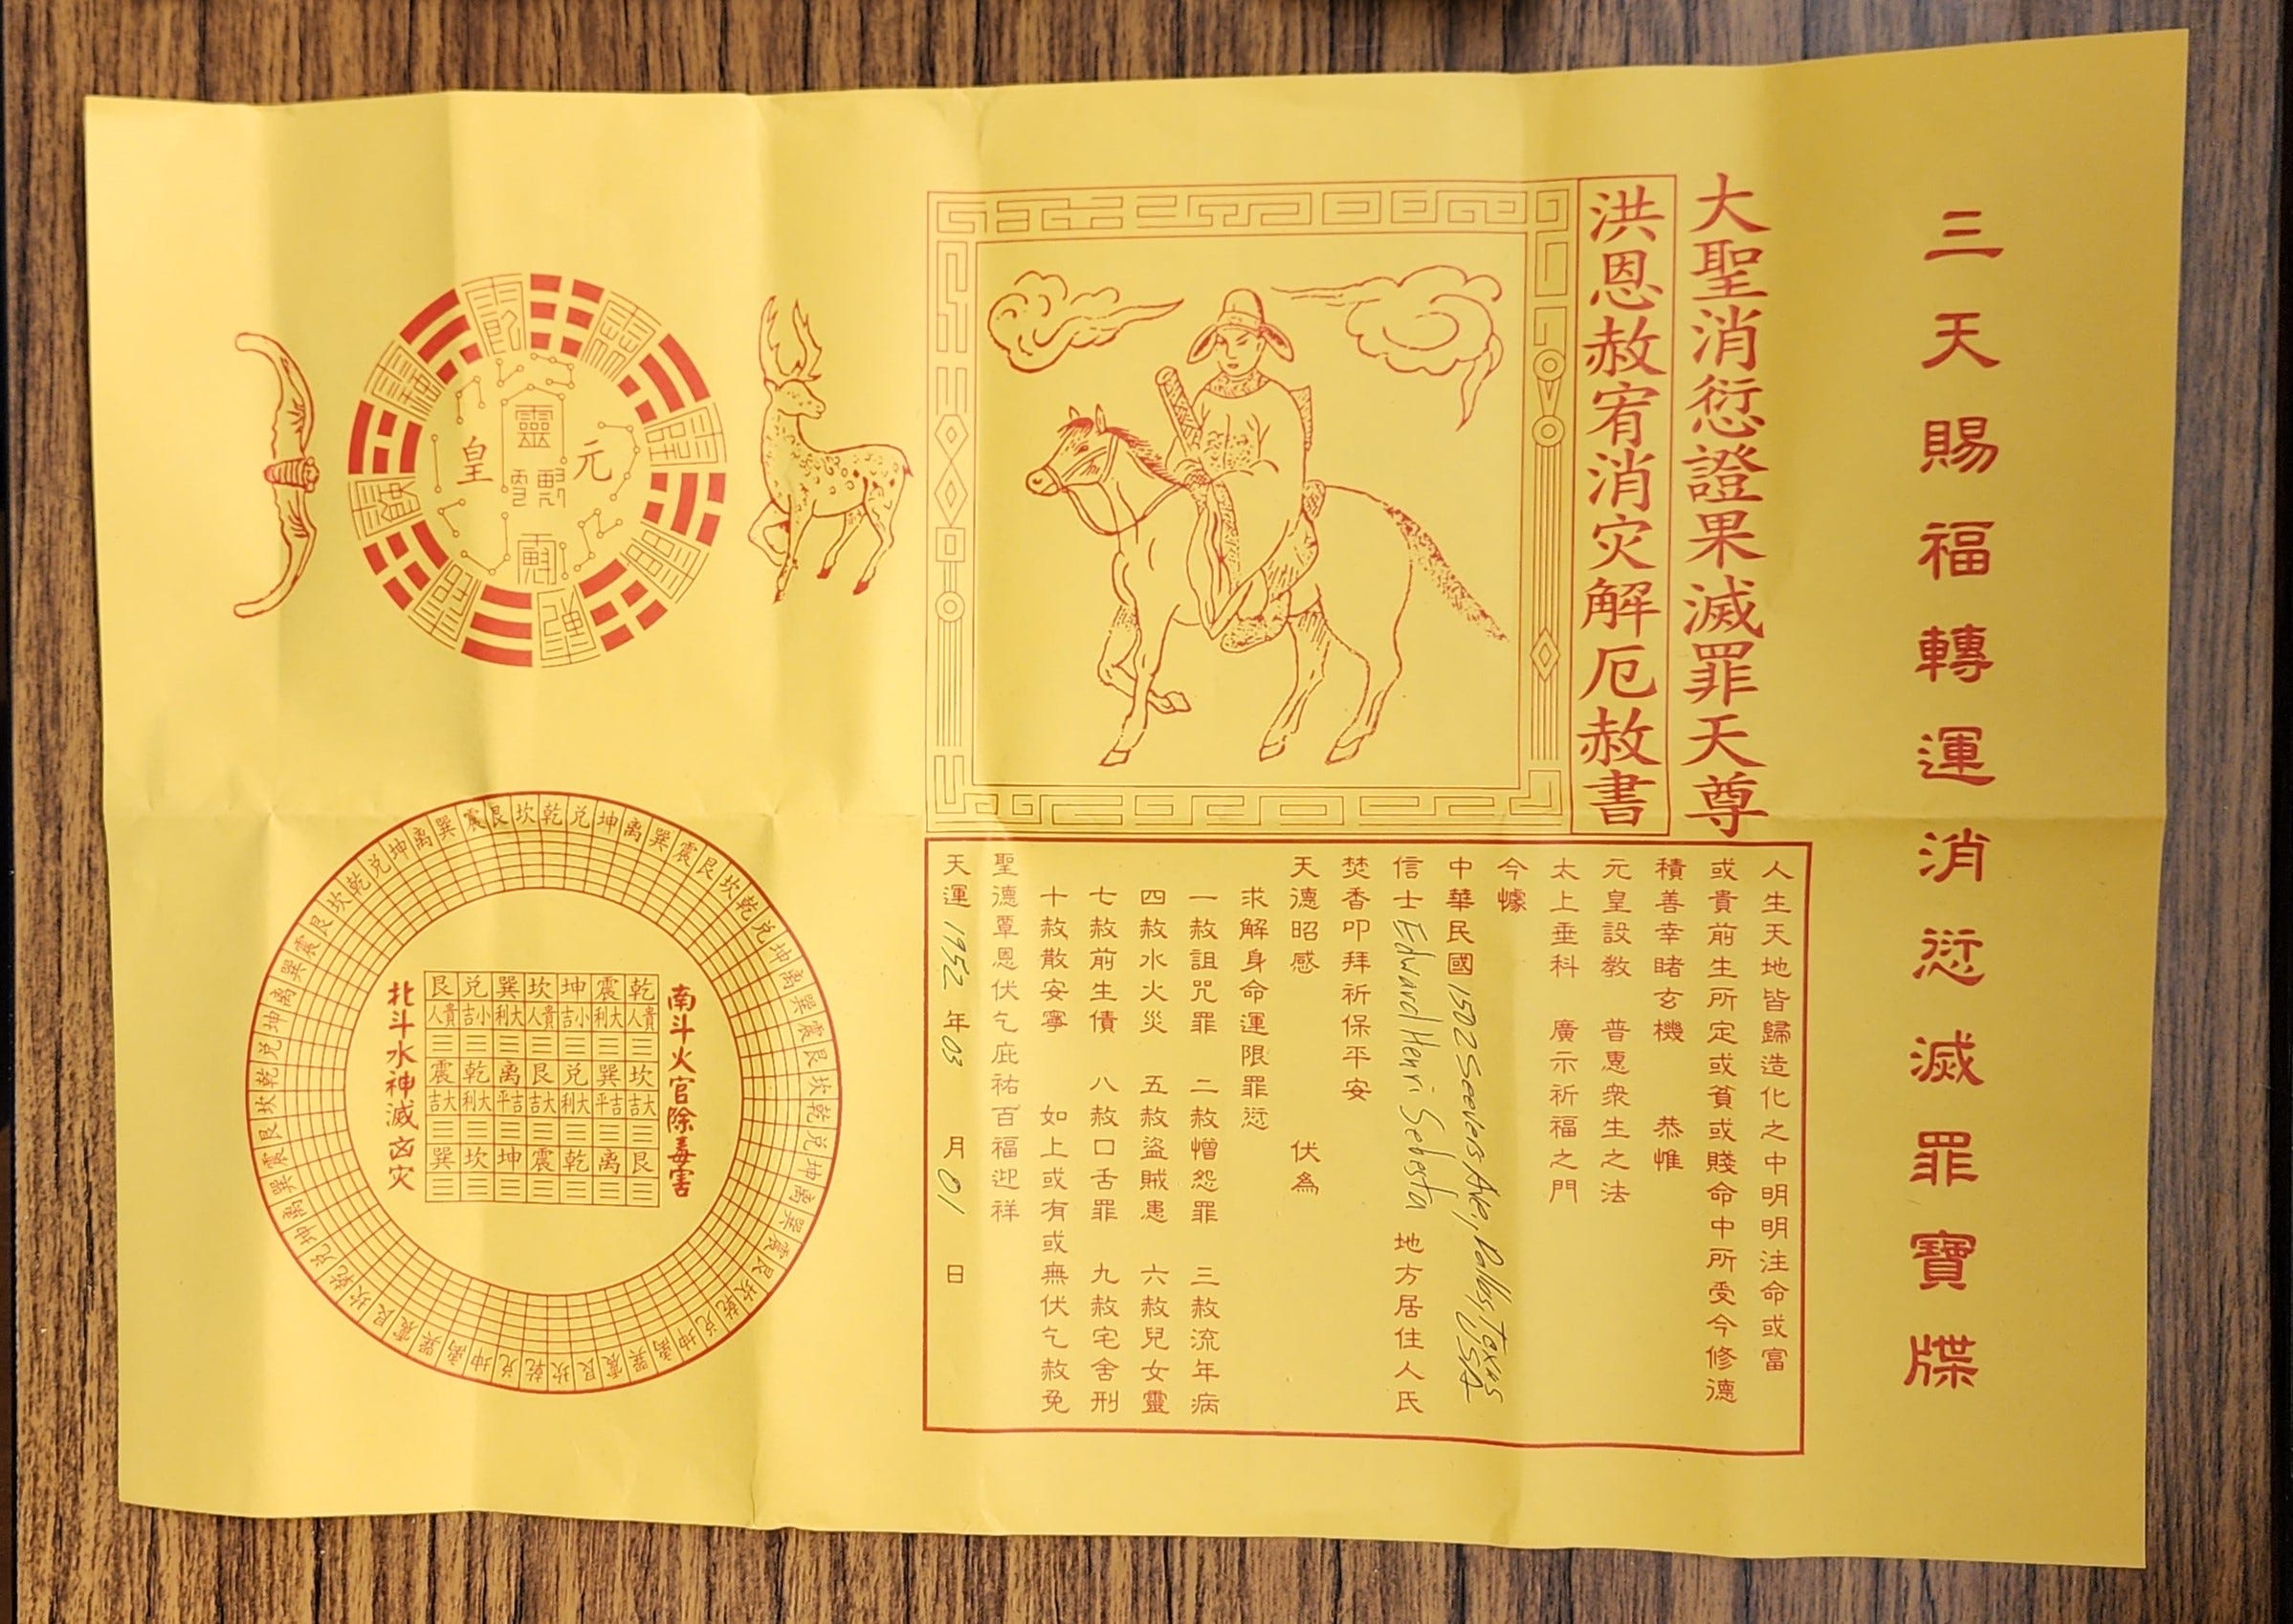 三天賜福轉運消愆滅罪寶牒
大聖消愆證果滅罪天尊
洪恩赦宥消灾解厄赦書
人生天地皆歸造化之中明明注命或富
或貴前生所定或貧或賤命中所受今修德
積善幸睹玄機 恭惟
元皇設教 普惠衆生之法
太上垂科 廣示祈福之門
今據
中華民國 1502 Seevers Ave, Dallas, Texas USA
信士 Edward Henri Sebesta 地方居住人氏
焚香叩拜祈保平安
天德昭感 伏為
求解身命運限罪愆
一赦詛咒罪 二赦憎怨罪 三赦流年病
四赦水火災 五赦盜賊患 六赦兒女靈
七赦前生債 八赦口舌罪 九赦宅舍刑
十赦散安寧 如上或有或無伏乞赦免
聖德覃恩伏乞庇祐百福迎祥
天運 1952 年 03 月 01 日
元皇
靈
南斗火官除毒害
乾震坤坎巽兌艮
貴人 大利 小吉 貴人 大利 小吉 貴人
坎巽兌艮離乾震
大吉 吉平 大利 大吉 吉平 大利 大吉
艮離乾震坤坎巽
北斗水神滅凶灾